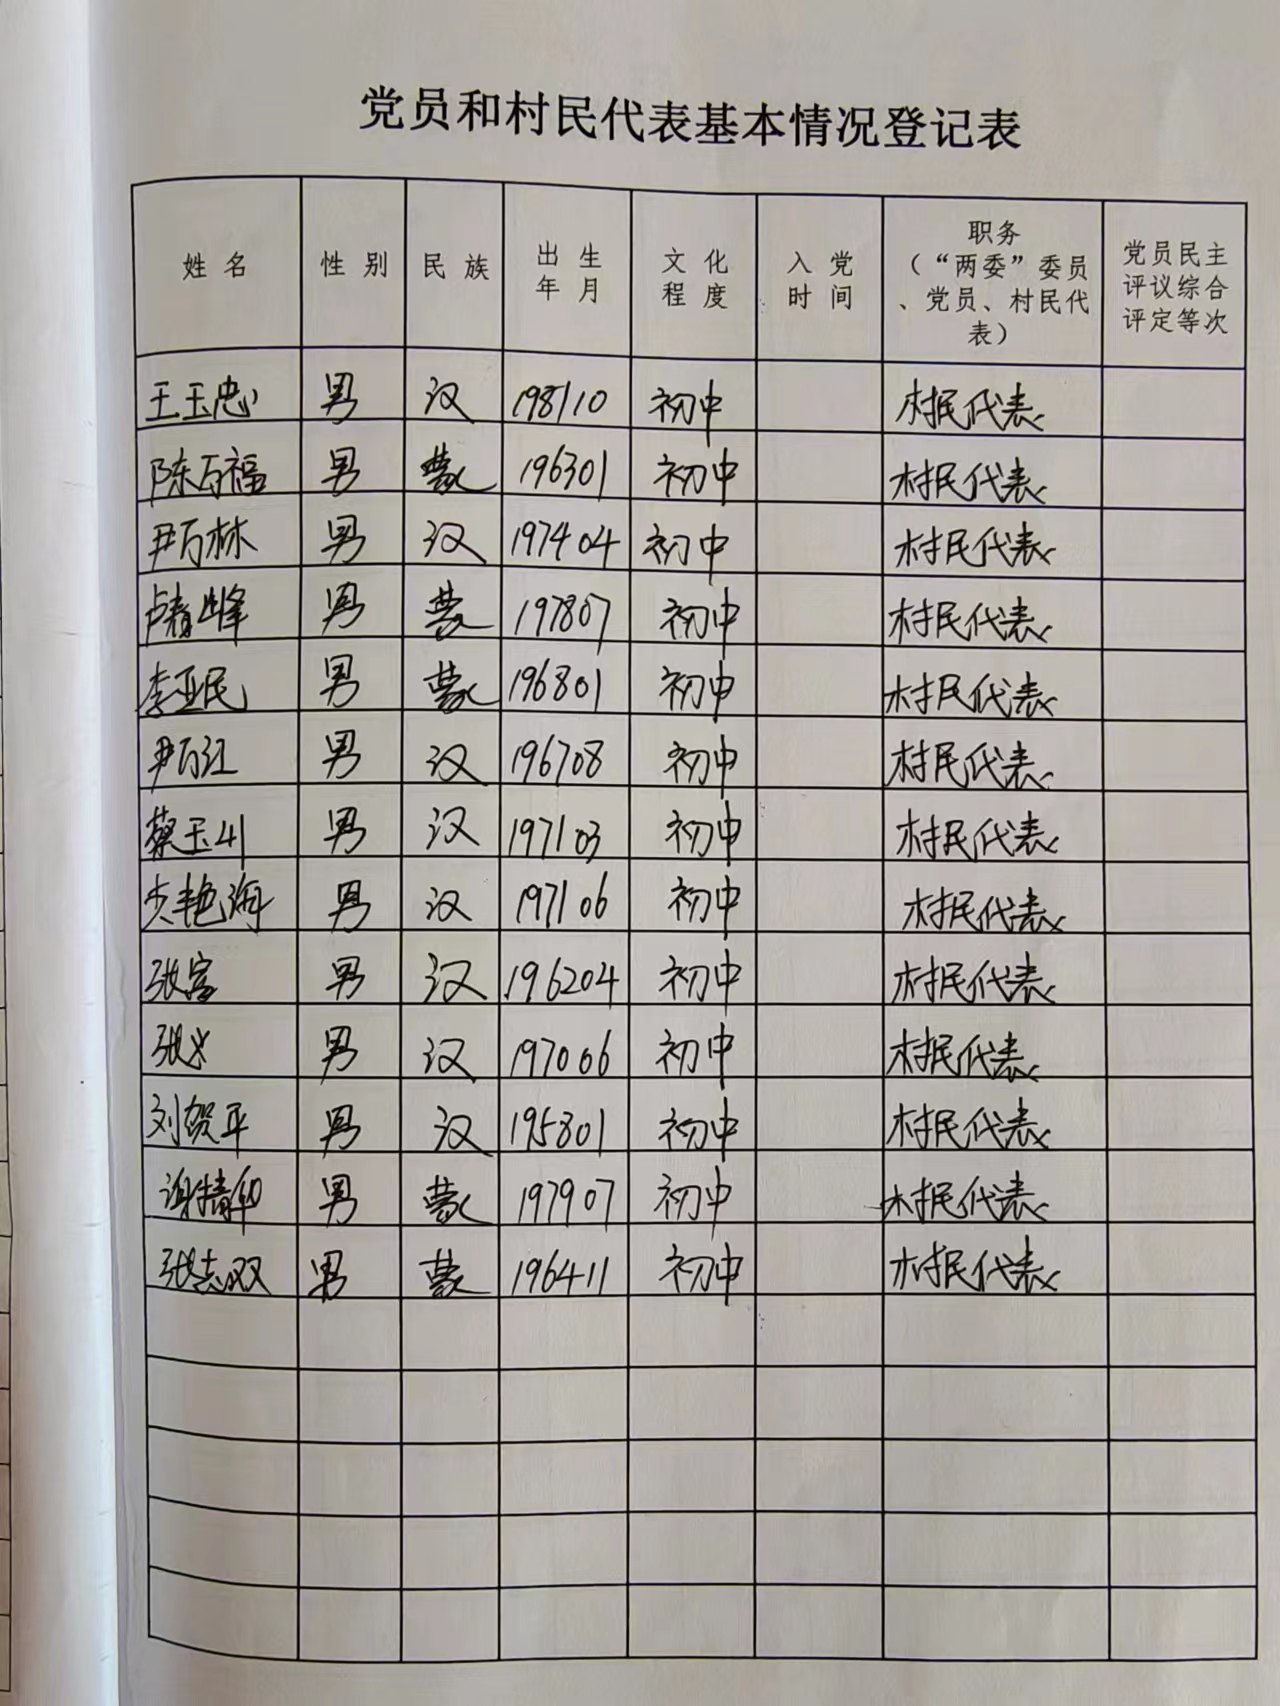 党员和村民代表基本情况登记表
姓名 性别 民族 出生年月 文化程度 入党时间 职务（“两委”委员、党员、村民代表） 党员民主评议综合评定等次
王玉忠 男 汉 198110 初中 村民代表
陈百福 男 蒙 196301 初中 村民代表
尹万林 男 汉 197404 初中 村民代表
卢春峰 男 蒙 197807 初中 村民代表
李亚民 男 蒙 196801 初中 村民代表
尹万江 男 汉 196708 初中 村民代表
蔡玉山 男 汉 197103 初中 村民代表
艳海 男 汉 197106 初中 村民代表
张富 男 汉 196204 初中 村民代表
张义 男 汉 197006 初中 村民代表
刘贺平 男 汉 195801 初中 村民代表
谢精华 男 蒙 197907 初中 村民代表
张志双 男 蒙 196411 初中 村民代表